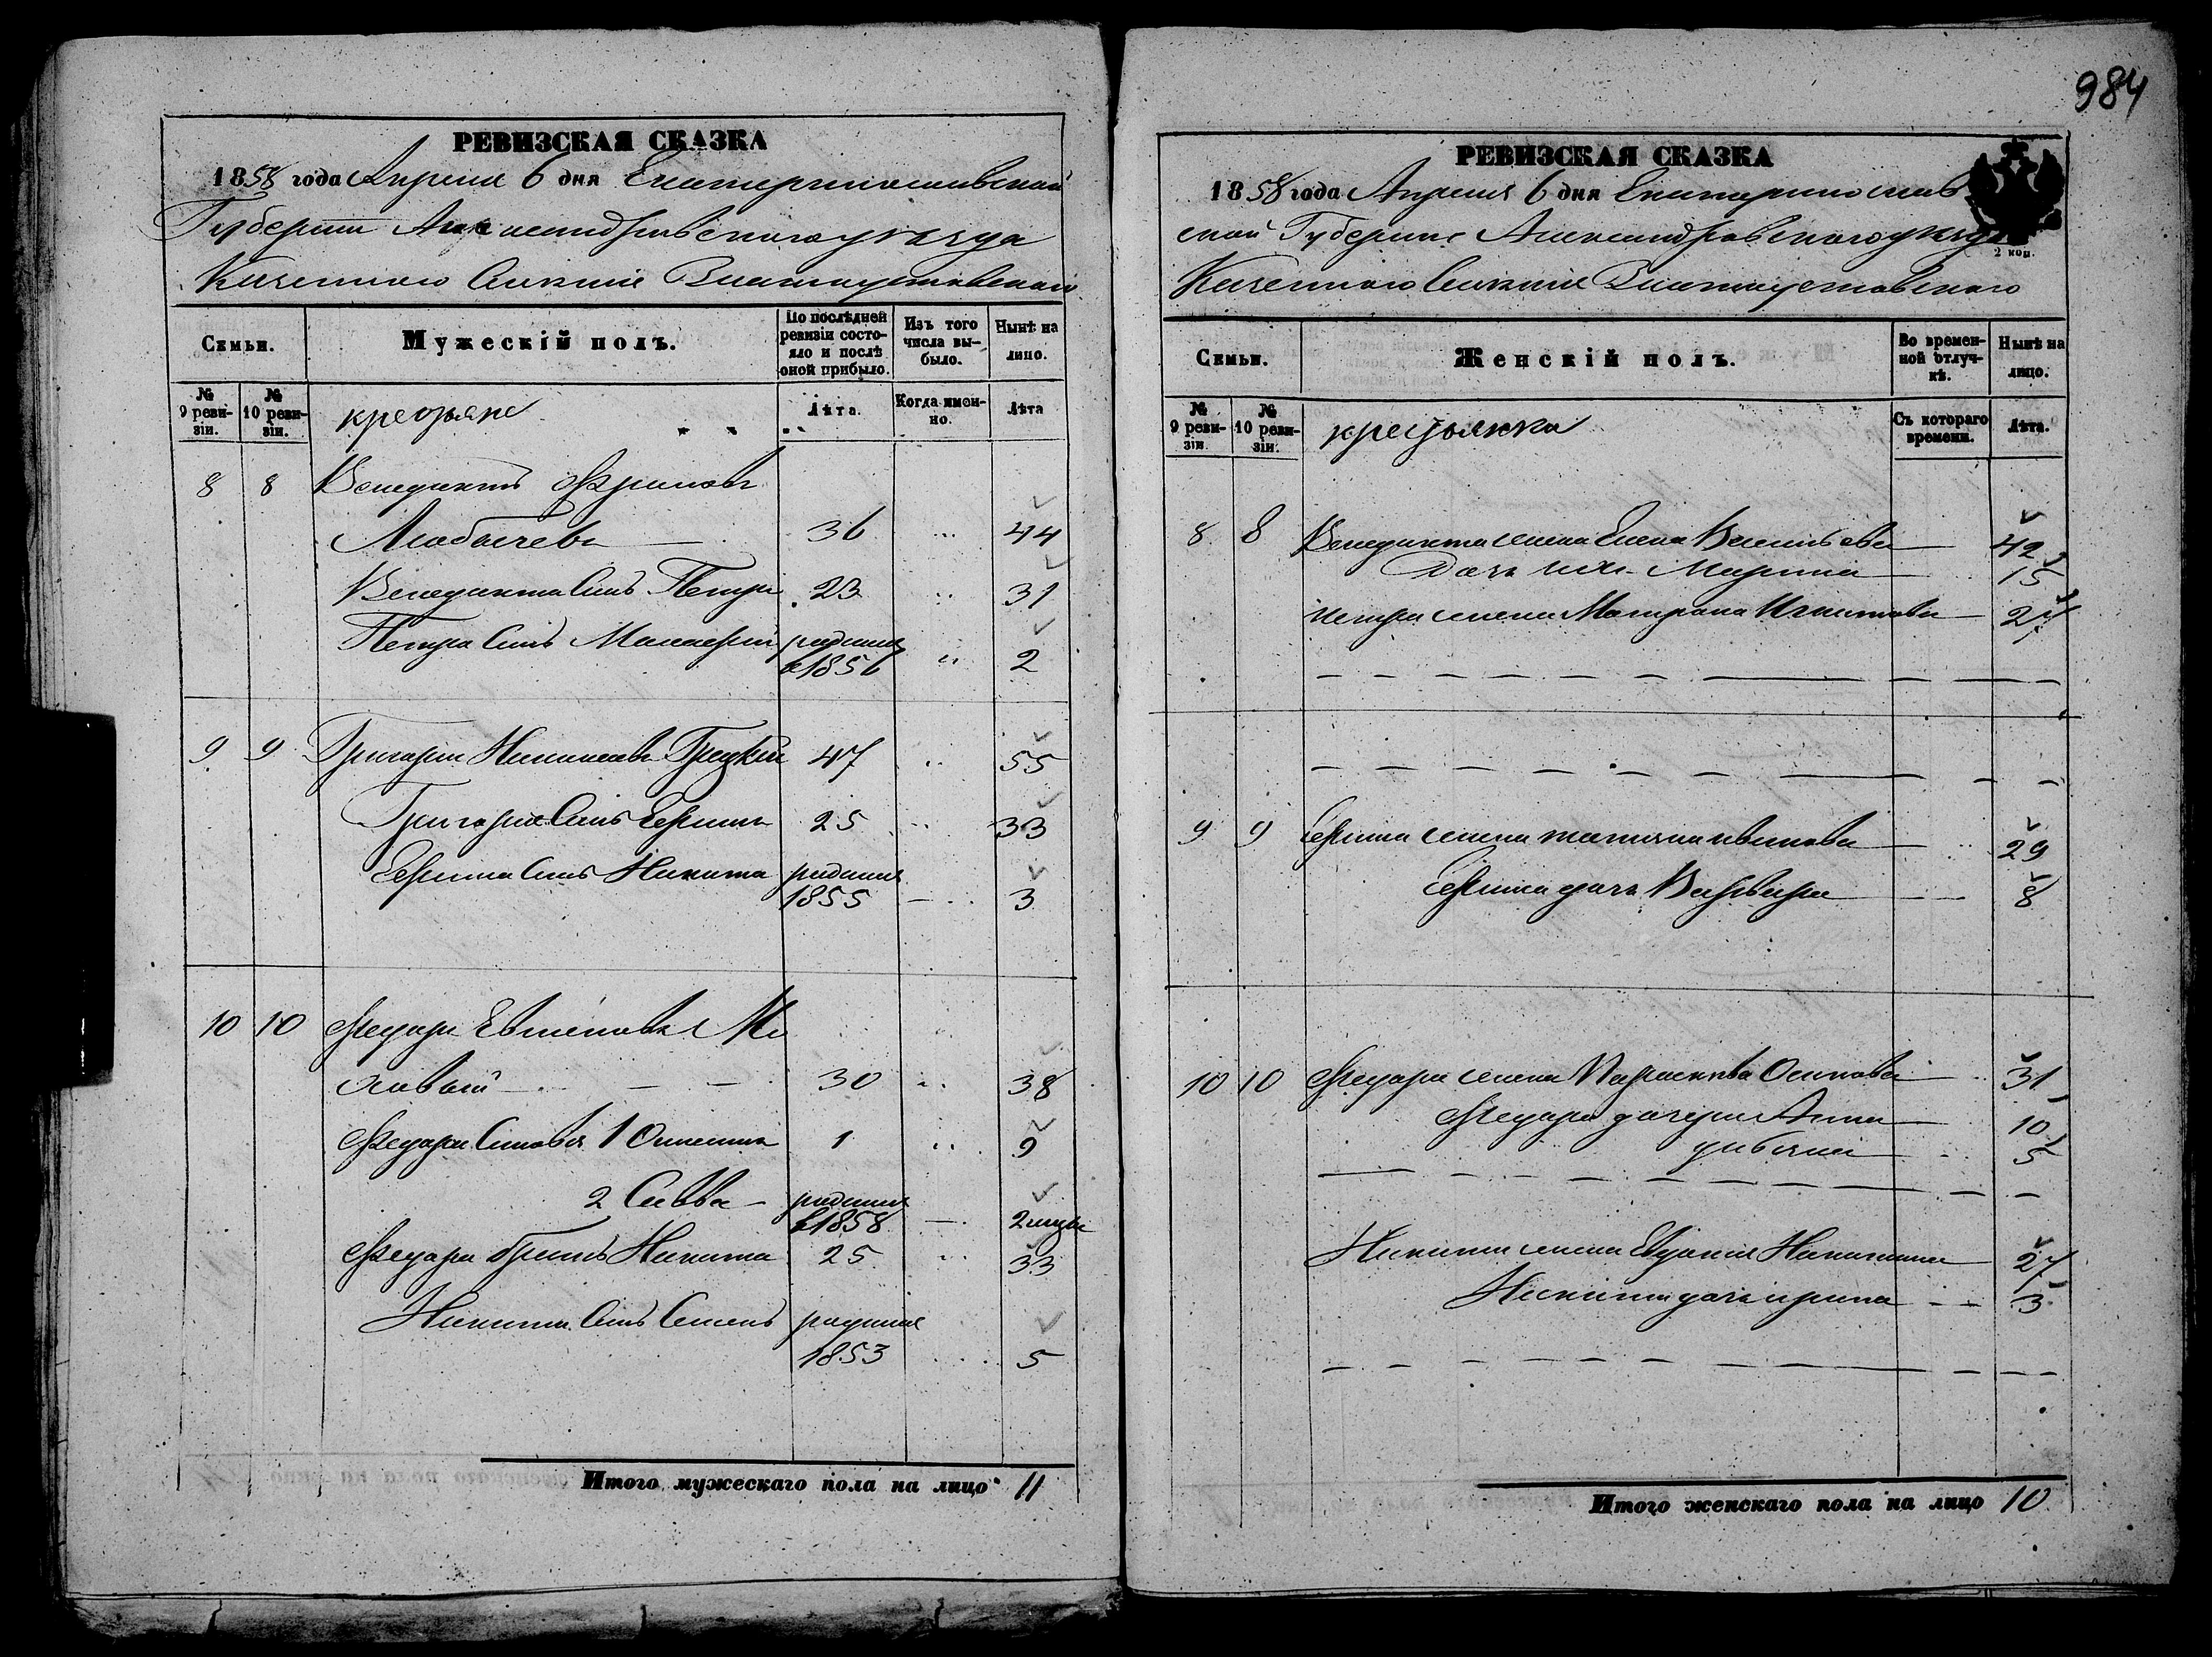 984
РЕВИЗСКАЯ СКАЗКА
1858 года Апреля 6 дня Екатеринославской
Губернии Александровского уезда
Казенного Селения
Семьи.
Мужескій полъ.
По послѣдней ревизіи состояло и послѣ оной прибыло.
Изъ того числа выбыло.
Нынѣ на лицо.
№ 9 ревизіи.
№ 10 ревизіи.
крестьяне
Лѣта.
Когда именно.
Лѣта
8 8 Венедиктъ
36 44
Венедикта Сынъ Петръ 23 31
Петра Сынъ родился
в 1856 2
9 9 Григорий 47 55
Григория Сынъ Ефимъ 25 33
Ефима Сынъ Никита родился
1855 3
10 10 Федоръ
30 38
Федора Сыновья 1 1 9
2 Савва родился
в 1858 2 месяца
Федора братъ Никита 25 33
Никиты Сынъ Семенъ родился
1853 5
Итого мужескаго пола на лицо 11
РЕВИЗСКАЯ СКАЗКА
1858 года Апреля 6 дня Екатеринослав
ской Губернии Александровского уезда
2 коп.
Казенного Селения
Семьи.
Женскій полъ.
Во временной отлучкѣ.
Нынѣ на лицо.
№ 9 ревизіи.
№ 10 ревизіи.
крестьянка
Съ котораго времени.
Лѣта.
8 8 Венедикта жена Елена 42
Дочь ихъ Марина 15
Петра жена Матрона 27
9 9 Ефима жена татияна 29
Ефима дочь Варвара 8
10 10 Федора жена Осипова 31
Федора дочери Анна 10
5
Никиты жена Никитина 27
Никиты дочь ирина 3
Итого женскаго пола на лицо 10